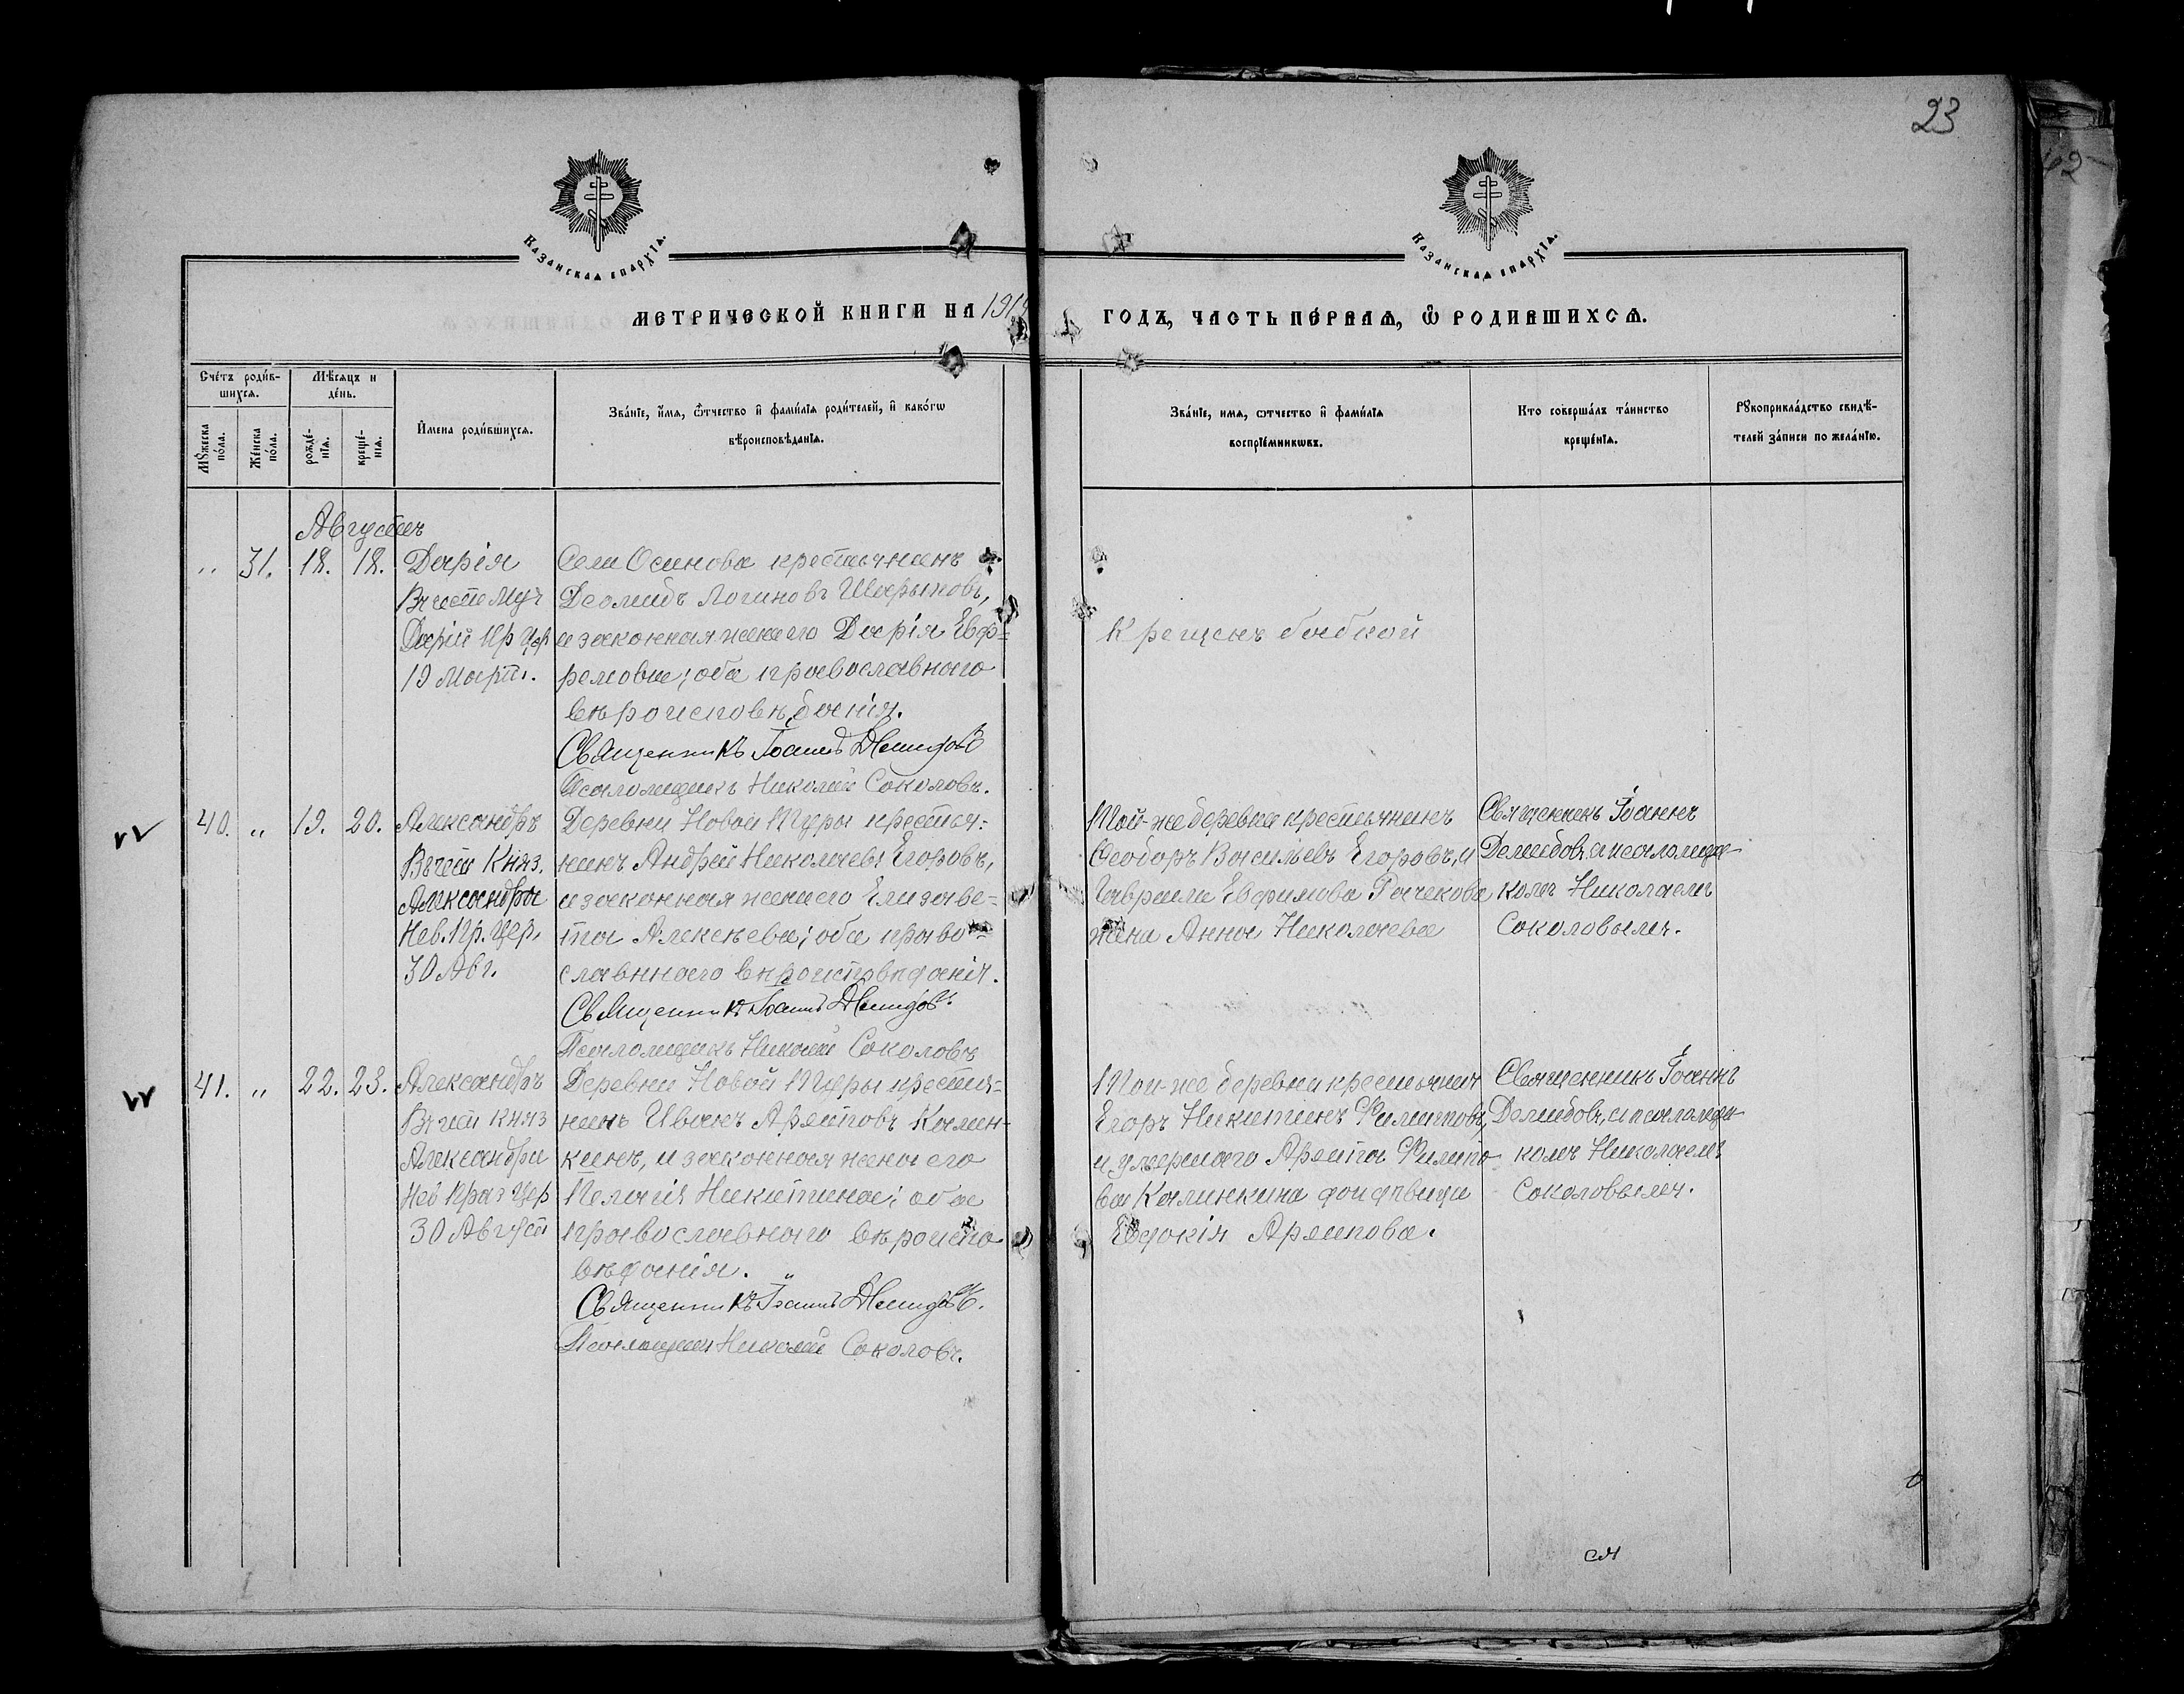 23
42
Казанская епархія.
Казанская епархія.
МЕТРИЧЕСКОЙ КНИГИ НА 1914
ГОДЪ, ЧАСТЬ ПЕ́РВАЯ, Ѿ РОДИВШИХСЯ.
Сче́тъ роди́в-
шихся.
Мѣ́сяцъ и
де́нь.
Му́жеска
по́ла.
Же́нска
по́ла.
рожде́-
нія.
креще́-
нія.
И́мена роди́вшихся.
Зва́ніе, и́мя, ѻ́тчество и҆ фами́лія роди́телей, и҆ како́гѡ
вѣроисповѣ́данія.
Зва́ніе, имя, ѻтчество и҆ фами́лія
воспріе́мникѡвъ.
Кто соверша́лъ та́инство
креще́нія.
Рꙋкоприкла́дство свидѣ́-
телей за́писи по жела́нію.
Августъ
" 31. 18. 18. Дарія
Въ честь Муч
Дарій Пр Цер
19 Март.
Села Осинова крестьянинъ
Деомидъ Логиновъ Шарыповъ,
и законная жена его Дарія Евф=
ремова; оба православнаго
вѣроисповѣданія.
Священникъ Іоаннъ Демидовъ
Псаломщикъ Николай Соколовъ.
Крещенъ бабкой
40. " 19. 20. Александръ
Въ честь Княз.
Александра
Нев. Пр. Цер.
30 Авг.
Деревни Новой Туры крестья=
нинъ Андрей Николаевъ Егоровъ,
и законная жена его Елизаве=
та Алексѣева; оба право=
славннаго вѣроисповѣданія.
Священникъ Іоаннъ Демидовъ
Псаломщикъ Николай Соколовъ
Той-же деревни крестьянинъ
Ѳеодоръ Васильевъ Егоровъ, и
Гавриила Евфимова
жена Анна Николаева
Священникъ Іоаннъ
Демидовъ, и псаломщи-
комъ Николаемъ
Соколовымъ.
41. " 22. 23. Александръ
Въ честь Княз
Александра
Нев Праз Цер
30 Августа
Деревни Новой Туры крестья=
нинъ Иванъ Ариповъ Калин-
кинъ, и законная жена его
Пелагія Никитина; оба
православнаго вѣроиспо
вѣданія.
Священникъ Іоаннъ Демидовъ.
Псаломщикъ Николай Соколовъ.
Той-же деревни крестьянинъ
Егоръ Никитинъ Филипповъ,
и умершаго Арипа Филипо
ва Калинкина дочь дѣвица
Евдокія Арипова.
Священникъ Іоаннъ
Демидовъ, и псаломщи-
комъ Николаемъ
Соколовымъ.